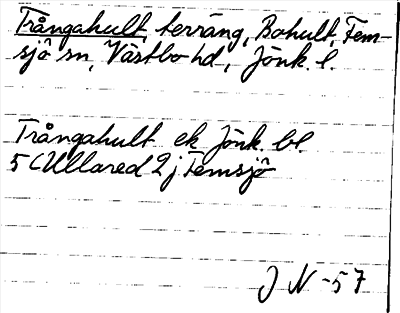 Trångahult, terräng, Bohult, Fem-
sjö sn, Västbo hd, Jönk. l.
Trångahult ek Jönk. bl.
5 (Ullared 2 j Femsjö
J N -57